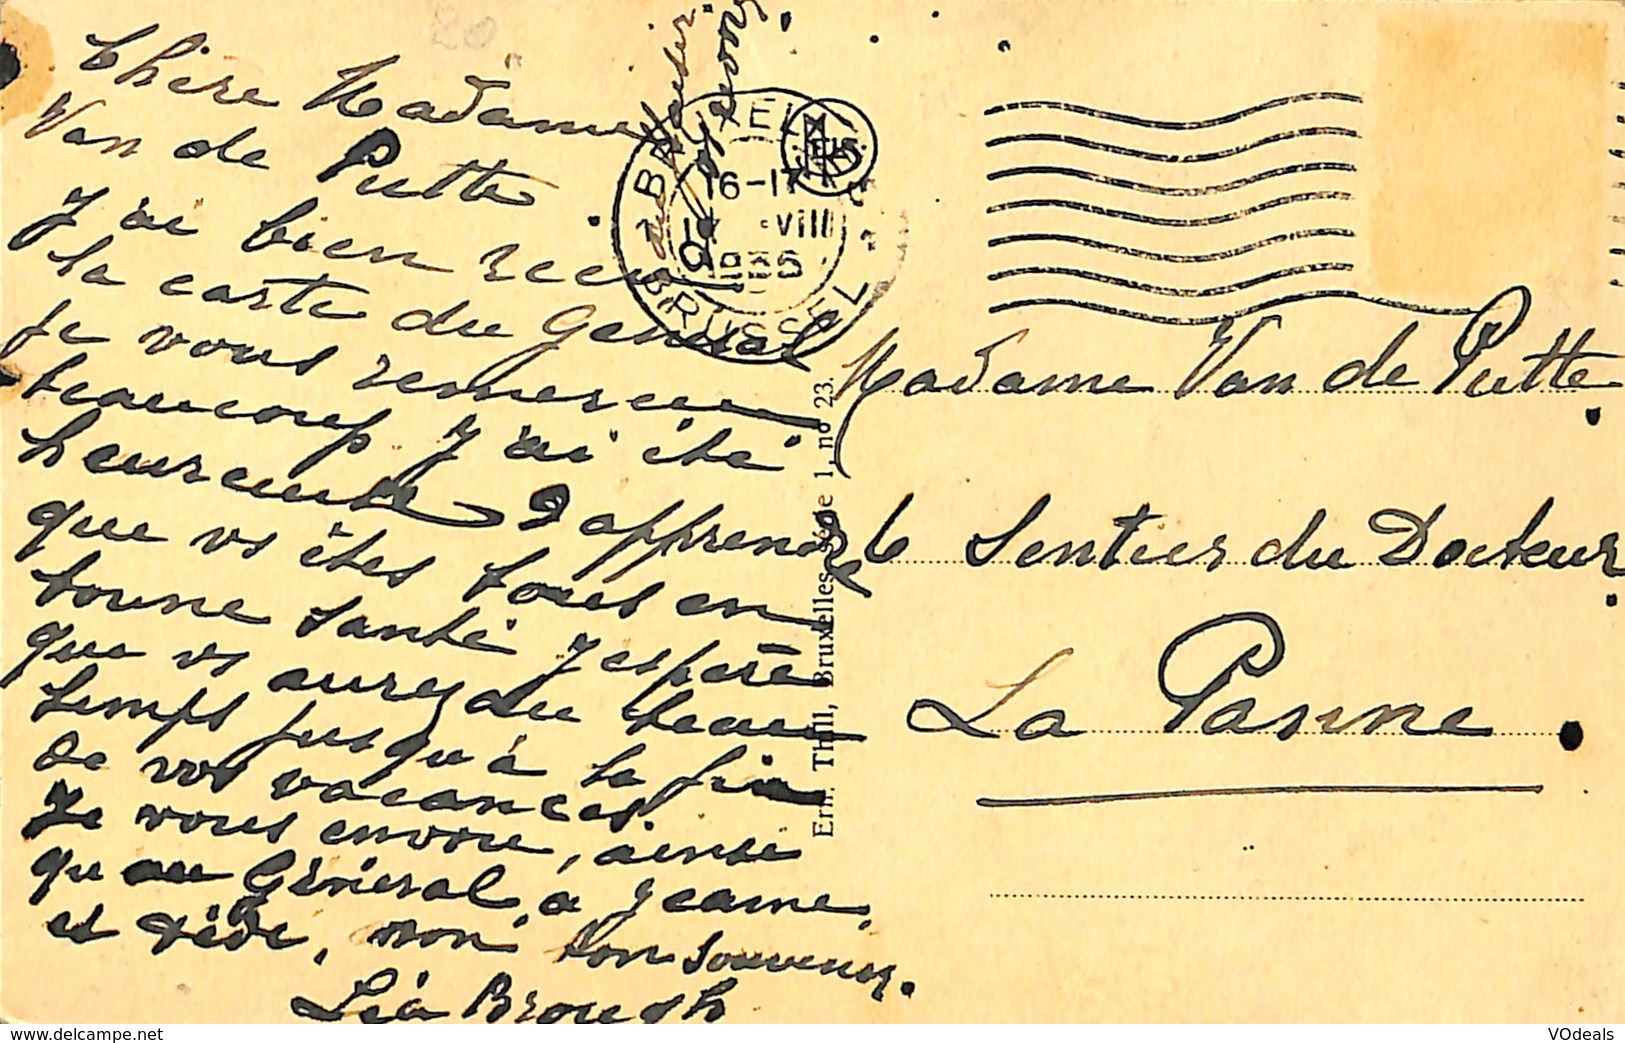 Chère Madame
Van de Putte
J'ai bien reçu
la carte du Général
je vous remercie
beaucoup J'ai été
heureuse d'apprendre
que vs êtes tous en
bonne santé J'espère
que vs aurez du beau
temps jusqu'à la fin
de vos vacances.
Je vous envoie, ainsi
qu'au Général, à Jeanne,
et Dédé, mon bon souvenir.
Léa Brough
BRUXELLES
16-17
VIII
1935
BRUSSEL
Ern. Thill, Bruxelles, Série 1, no 23.
Madame Van de Putte
6 Sentier du Docteur
La Panne.
www.delcampe.net
VOdeals